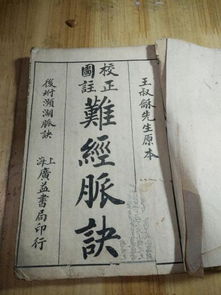 王叔龢先生原本
校正
圖註
難經脈訣
後附瀕湖脈訣
上海
廣益書局印行